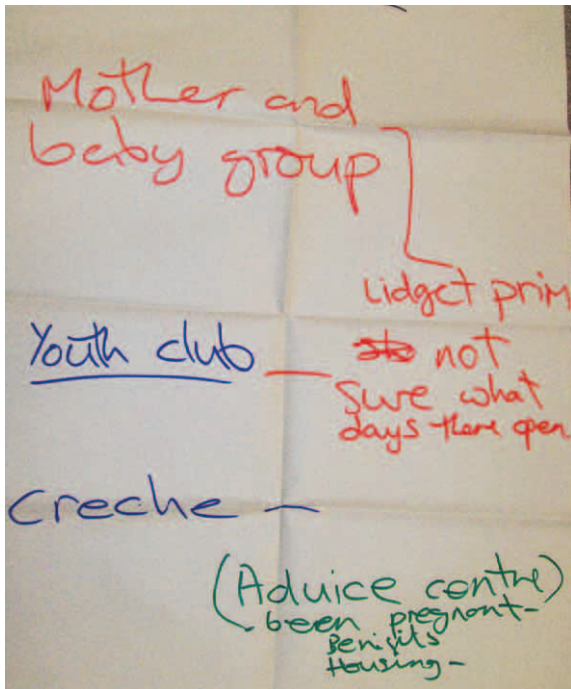 Mother and
baby group
Lidget prim
Youth club — not
sure what
days there open
Creche —
(Advice centre)
- been pregnant -
Benifits
Housing -